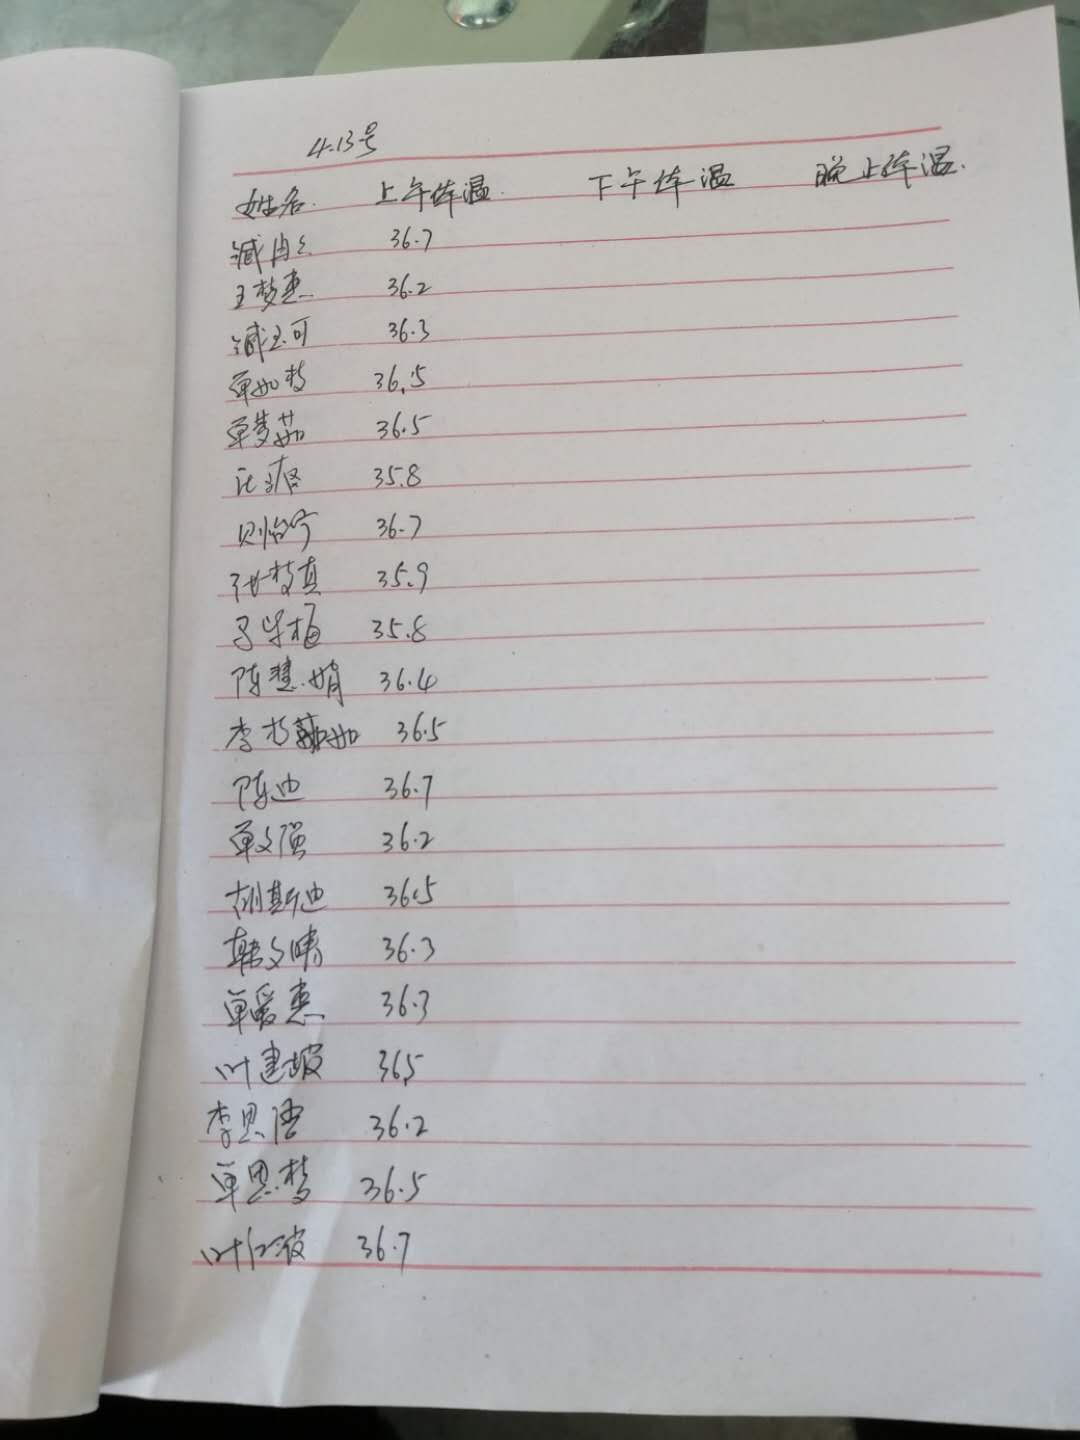 4.13号
姓名. 上午体温. 下午体温 晚上体温.
臧 36.7
王梦惠 36.2
臧玉可 36.3
单如梦 36.5
单梦茹 36.5
35.8
36.7
35.9
35.8
陈慧娟 36.4
李 如 36.5
陈迪 36.7
单文强 36.2
胡斯迪 36.5
韩文晴 36.3
单爱惠 36.3
叶建坡 36.5
李思 36.2
单思梦 36.5
叶红波 36.7